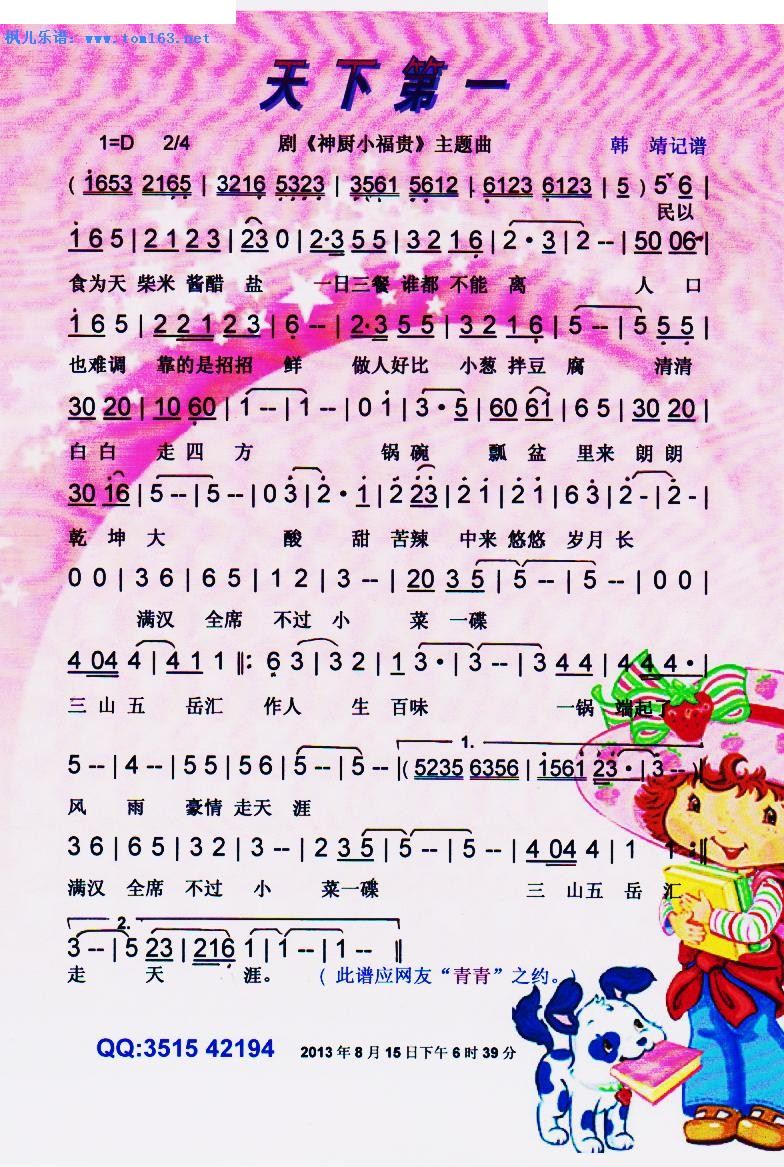 枫儿乐谱：www.tom163.net
天下第一
1=D 2/4 剧《神厨小福贵》主题曲 韩 靖记谱
( 1653 2165 | 3216 5323 | 3561 5612 | 6123 6123 | 5 ) 5 6 |
民以
1 6 5 | 2 1 2 3 | 23 0 | 2·3 5 5 | 3 2 1 6 | 2 · 3 | 2 -- | 50 06 |
食为天 柴米 酱醋 盐 一日三餐 谁都 不能 离 人 口
1 6 5 | 2 2 1 2 3 | 6 -- | 2·3 5 5 | 3 2 1 6 | 5 -- | 5 5 5 |
也难调 靠的是招招 鲜 做人好比 小葱 拌豆 腐 清清
30 20 | 10 60 | 1 -- | 1 -- | 0 1 | 3 · 5 | 60 61 | 6 5 | 30 20 |
白白 走四 方 锅碗 瓢 盆 里来 朗朗
30 16 | 5 -- | 5 -- | 0 3 | 2 · 1 | 2 23 | 2 1 | 2 1 | 6 3 | 2 - | 2 - |
乾 坤 大 酸 甜 苦辣 中来 悠悠 岁月 长
0 0 | 3 6 | 6 5 | 1 2 | 3 -- | 20 3 5 | 5 -- | 5 -- | 0 0 |
满汉 全席 不过 小 菜 一碟
4 04 4 | 4 1 1 :‖: 6 3 | 3 2 | 1 3 · | 3 -- | 3 4 4 | 4 4 4 · |
三 山 五 岳汇 作人 生 百味 一锅 端起了
1.
5 -- | 4 -- | 5 5 | 5 6 | 5 -- | 5 -- | ( 5235 6356 | 1561 23 · | 3 -- )
风 雨 豪情 走天 涯
3 6 | 6 5 | 3 2 | 3 -- | 2 3 5 | 5 -- | 5 -- | 4 04 4 | 1 1 :‖
满汉 全席 不过 小 菜一碟 三 山五 岳 汇
2.
3 -- | 5 23 | 216 1 | 1 -- | 1 -- ‖
走 天 涯。 ( 此谱应网友“青青”之约。)
QQ:3515 42194 2013 年 8 月 15 日下午 6 时 39 分